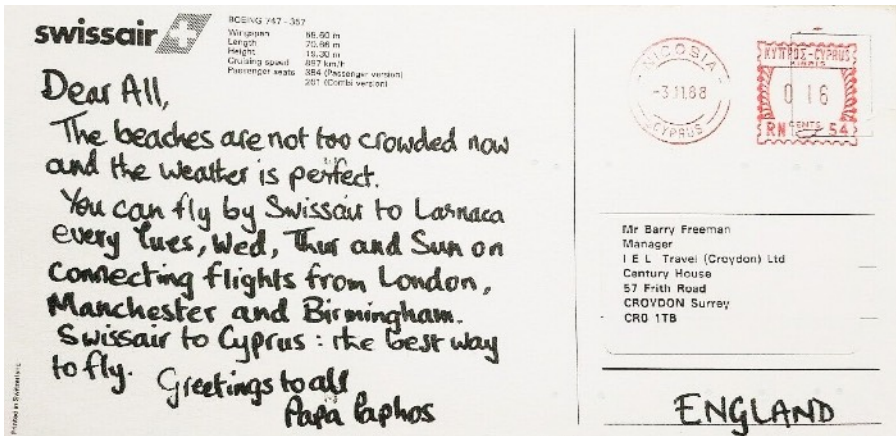 swissair
BOEING 747 - 357
Wingspan 59.60 m
Length 70.66 m
Height 19.30 m
Cruising speed 897 km/h
Passenger seats 384 (Passenger version)
261 (Combi version)
Dear All,
The beaches are not too crowded now
and the weather is perfect.
You can fly by Swissair to Larnaca
every Tues, Wed, Thur and Sun on
connecting flights from London,
Manchester and Birmingham.
Swissair to Cyprus : the best way
to fly.
Greetings to all
Papa Paphos
Printed in Switzerland
NICOSIA
-3.11.88
CYPRUS
ΚΥΠΡΟΣ-CYPRUS
KIBRIS
016
CENTS
RN 54
Mr Barry Freeman
Manager
I E L Travel (Croydon) Ltd
Century House
57 Frith Road
CROYDON Surrey
CR0 1TB
ENGLAND